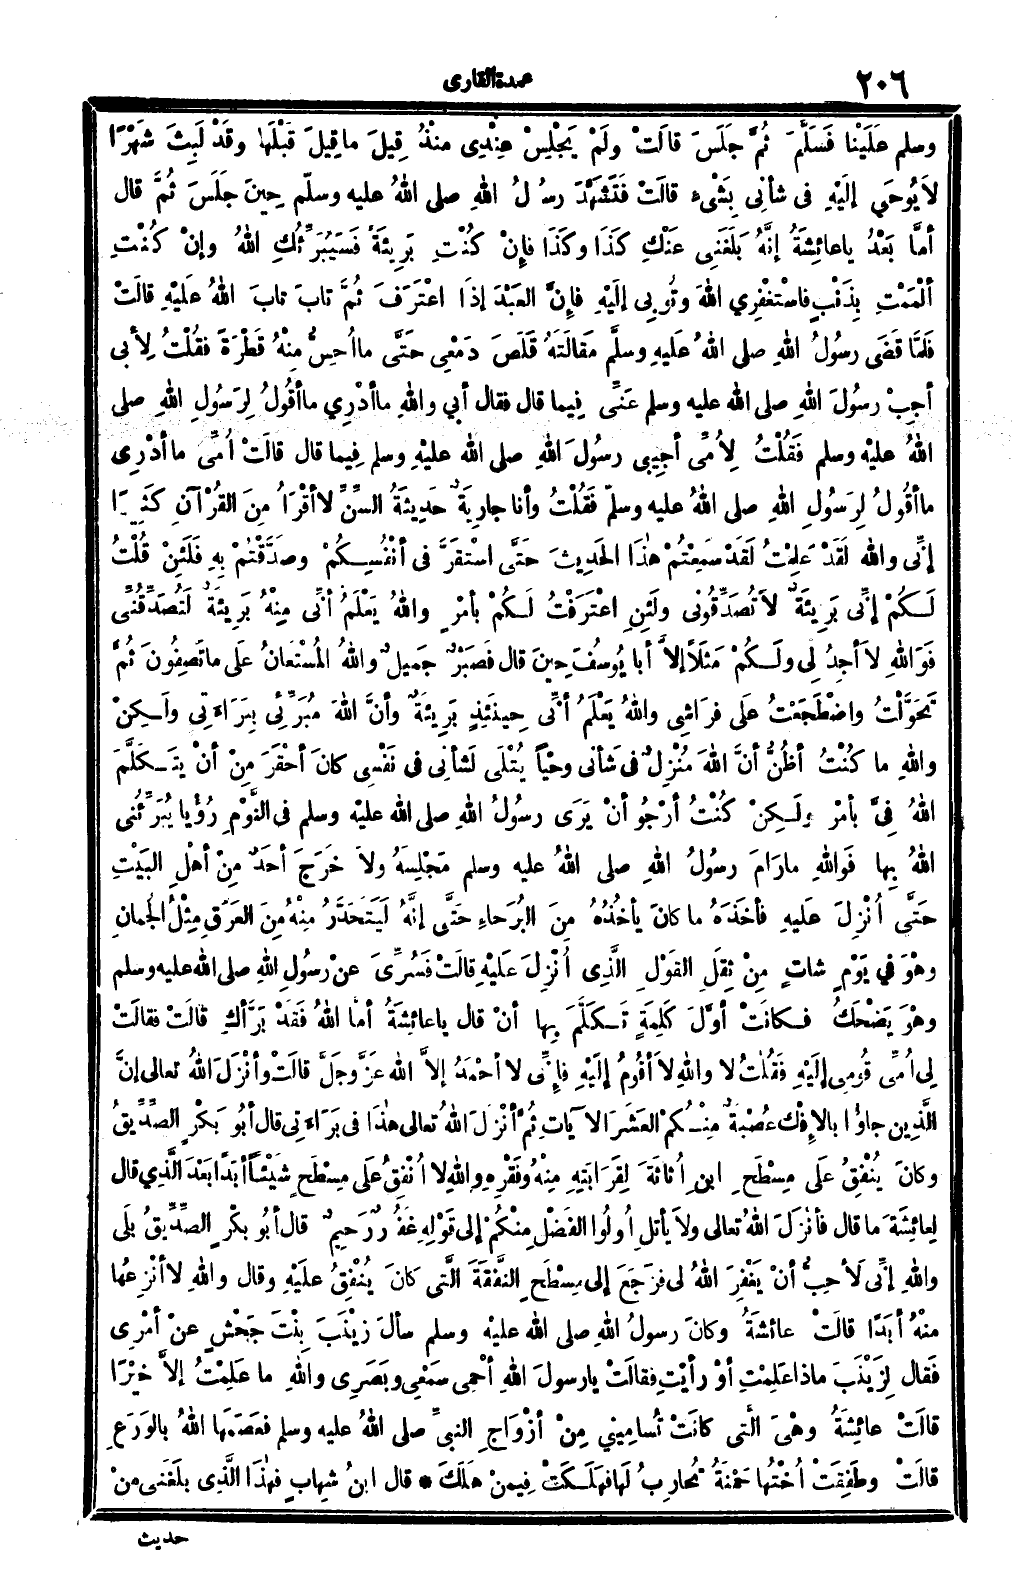 ٢٠٦ عمدة القارى
وسلم عَلَيْنا فَسَلَّمَ ثُمَّ جَلَسَ قالَتْ ولَمْ يَجْلِسْ عِنْدِى منْذُ قِيلَ ماقِيلَ قَبْلَها وقَدْ لَبِثَ شَهْرًا
لاَيُوحَي إلَيْهِ فى شأنِى بِشَىْءٍ قالَتْ فَتَشَهَّدَ رسُولُ اللهِ صلى اللهُ عليه وسلّم حِينَ جَلَسَ ثُمَّ قال
أمَّا بَعْدُ ياعائِشَةُ إنَّهُ بَلَغَنى عَنْكِ كَذَا وكَذَا فإنْ كُنْتِ بَرِيئَةً فَسَيُبَرِّئُكِ اللهُ وإنْ كُنْتِ
ألْمَمْتِ بِذَنْبٍ فاسْتَغْفِرِي اللهَ وتُوبِى إلَيْهِ فإنَّ العَبْدَ إذَا اعْتَرَفَ ثُمَّ تابَ تابَ اللهُ عَلَيْهِ قالَتْ
فَلمَّا قَضَى رسولُ اللهِ صلى اللهُ عَلَيهِ وسلَّم مَقالَتَهُ قَلَصَ دَمْعِى حتَّى ماأُحِسُّ مِنْهُ قَطْرَةً فقُلْتُ لِأبى
أجِبْ رسُولَ اللهِ صلى الله عليه وسلم عَنِّى فِيما قال فقال أبي واللهِ ماأدْرِي ماأقُولُ لِرَسُولِ اللهِ صلى
اللهُ عليْه وسلم فَقُلْتُ لِأُمِّى أجِيبِى رسولَ اللهِ صلى الله عليْهِ وسلم فِيما قال قالَتْ أُمِّى ماأدْرِى
ماأقُولُ لِرَسُولِ اللهِ صلى اللهُ عليه وسلّم فَقُلْتُ وأنا جارِيَةٌ حَدِيثَةُ السِّنِّ لاأقْرَأُ مِنَ القُرْآنِ كَثِيرًا
إنِّى والله لَقَدْ عَلِمْتُ لَقَدْ سَمِعْتُمْ هٰذَا الحَدِيثَ حَتَّى اسْتَقَرَّ فى أنْفُسِكُمْ وصَدَّقْتُمْ بِهِ فَلَئِنْ قُلْتُ
لَكُمْ إنِّى بَرِيئَةٌ لاَتُصَدِّقُونى ولَئِنِ اعْتَرَفْتُ لَكُمْ بأمْرٍ واللهُ يَعْلَمُ أنِّى مِنْهُ بَرِيئَةٌ لَتُصَدِّقُنِّى
فَوَاللهِ لاَأجِدُ لِى ولَكُمْ مَثَلاً إلاَّ أبا يُوسُفَ حِينَ قال فَصَبْرٌ جَمِيلٌ واللهُ المُسْتَعانُ عَلى ماتَصِفُونَ ثُمَّ
تَحَوَّلْتُ واضْطَجَعْتُ على فِرَاشِى واللهُ يَعْلَمُ أنِّى حِينَئِذٍ بَرِيئَةٌ وأنَّ اللهَ مُبَرِّئِى بِبَرَاءَتِى ولٰكِنْ
واللهِ ما كُنْتُ أظُنُّ أنَّ اللهَ مُنْزِلٌ فى شَأنى وحْيًا يُتْلَى لَشأنى فى نَفْسِى كانَ أحْقَرَ مِنْ أنْ يَتَكَلَّمَ
اللهُ فِىَّ بأمْرٍ ولَكِنْ كُنْتُ أرْجُو أنْ يَرَى رسولُ اللهِ صلى الله عليْه وسلم فى النَّوْمِ رُؤْيا يُبَرِّئُنى
اللهُ بِها فَواللهِ مارَامَ رسولُ اللهِ صلى اللهُ عليه وسلم مَجْلِسَهُ ولاَ خَرَجَ أحَدٌ مِنْ أهْلِ البَيْتِ
حَتَّى أُنْزِلَ عَليهِ فأخَذَهُ ما كانَ يأخُذُهُ مِنَ البُرَحاءِ حَتَّى إنَّهُ لَيَتَحَدَّرُ مِنْهُ مِنَ العَرَقِ مِثْلُ الجُمانِ
وهْوَ في يَوْمٍ شاتٍ مِنْ ثِقَلِ القَوْلِ الَّذِى أُنْزِلَ عَلَيْهِ قالَتْ فَسُرِّىَ عَنْ رسُولِ اللهِ صلى الله عليه وسلم
وهْوَ يَضْحَكُ فَكانَتْ أوَّلَ كَلِمَةٍ تَكَلَّمَ بِها أنْ قال ياعائِشَةُ أمَّا اللهُ فَقَدْ بَرَّأكِ قالَتْ فقالَتْ
لِى أُمِّى قُومِى إلَيْهِ فَقُلْتُ لا واللهِ لاَأقُومُ إلَيْهِ فإنِّى لاأحْمَدُ إلاَّ الله عَزَّ وجَلَّ قالَتْ وأنْزَلَ اللهُ تعالى إنَّ
الَّذِينَ جاؤُا بالإفْكِ عُصْبَةٌ مِنْكُم العَشْرَ الآياتِ ثُمَّ أنْزَلَ اللهُ تعالى هٰذَا فى بَرَاءَتِى قال أبُو بَكْرٍ الصِّدِّيقُ
وكانَ يُنْفِقُ عَلَى مِسْطَحِ ابنِ أُثاثَةَ لِقَرَابَتِهِ مِنْهُ وفَقْرِهِ واللهِ لاأُنْفِقُ عَلى مِسْطَحٍ شَيْئًا أبَدًا بَعْدَ الَّذِي قال
لِعائِشَةَ ما قال فأنْزَلَ اللهُ تعالى ولاَيأتَلِ أُولُوا الفَضْلِ مِنْكُمْ إلى قَوْلِهِ غَفُورٌ رَحِيمٌ قال أبُو بكْرٍ الصِّدِّيقُ بلَى
واللهِ إنِّى لَأُحِبُّ أنْ يَغْفِرَ اللهُ لى فرَجَعَ إلى مِسْطَحٍ النَّفَقَةَ الَّتى كانَ يُنْفِقُ عَلَيْهِ وقال واللهِ لاأنْزِعُها
منْهُ أبَدًا قالَتْ عائِشَةُ وكانَ رسولُ اللهِ صلى الله عليْه وسلم سألَ زيْنَبَ بِنْتَ جَحْشٍ عنْ أمْرِى
فَقال لِزَيْنَبَ ماذَا عَلِمْتِ أوْ رأيْتِ فقالَتْ يارسولَ اللهِ أحْمِى سَمْعِى وبَصَرِى واللهِ ما عَلِمْتُ إلاَّ خَيْرًا
قالَتْ عائِشَةُ وهْىَ الَّتى كانَتْ تُسامِينِي مِنْ أزْوَاجِ النبىِّ صلى اللهُ عليه وسلم فعَصَمَها اللهُ بالوَرَعِ
قالَتْ وطَفِقَتْ أُخْتُها حَمْنَةُ تُحارِبُ لَها فهَلَكَتْ فِيمنْ هَلَكَ * قال ابنُ شِهابٍ فهٰذَا الَّذِى بلَغَنى مِنْ
حديث